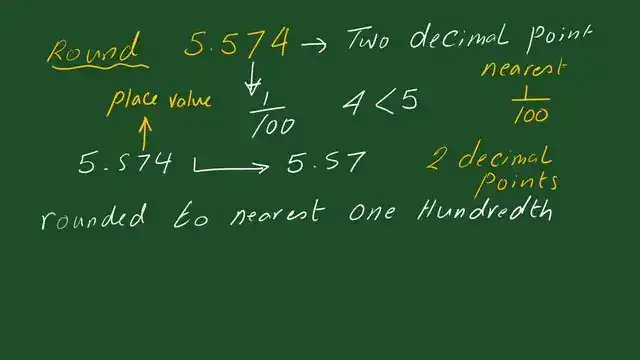 Round 5.574 → Two decimal point
nearest
place value 1/100 4 < 5 1/100
5.574 → 5.57 2 decimal
points
rounded to nearest one Hundredth